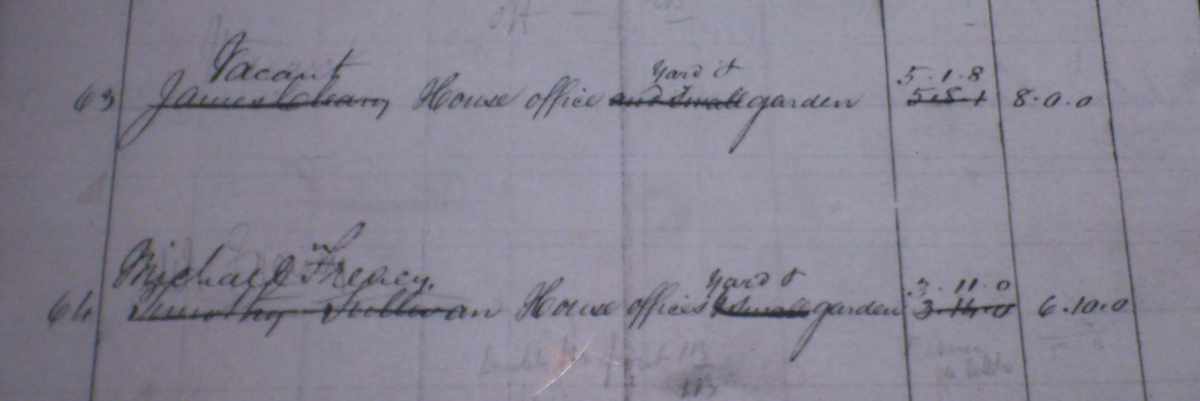 Vacant yard & 5.1.8
63 James Cleary House office and small garden 5.5.1 8.0.0
Michael yard & 3.11.0
64 Timothy Sullivan House offices & small garden 3.14.0 6.10.0